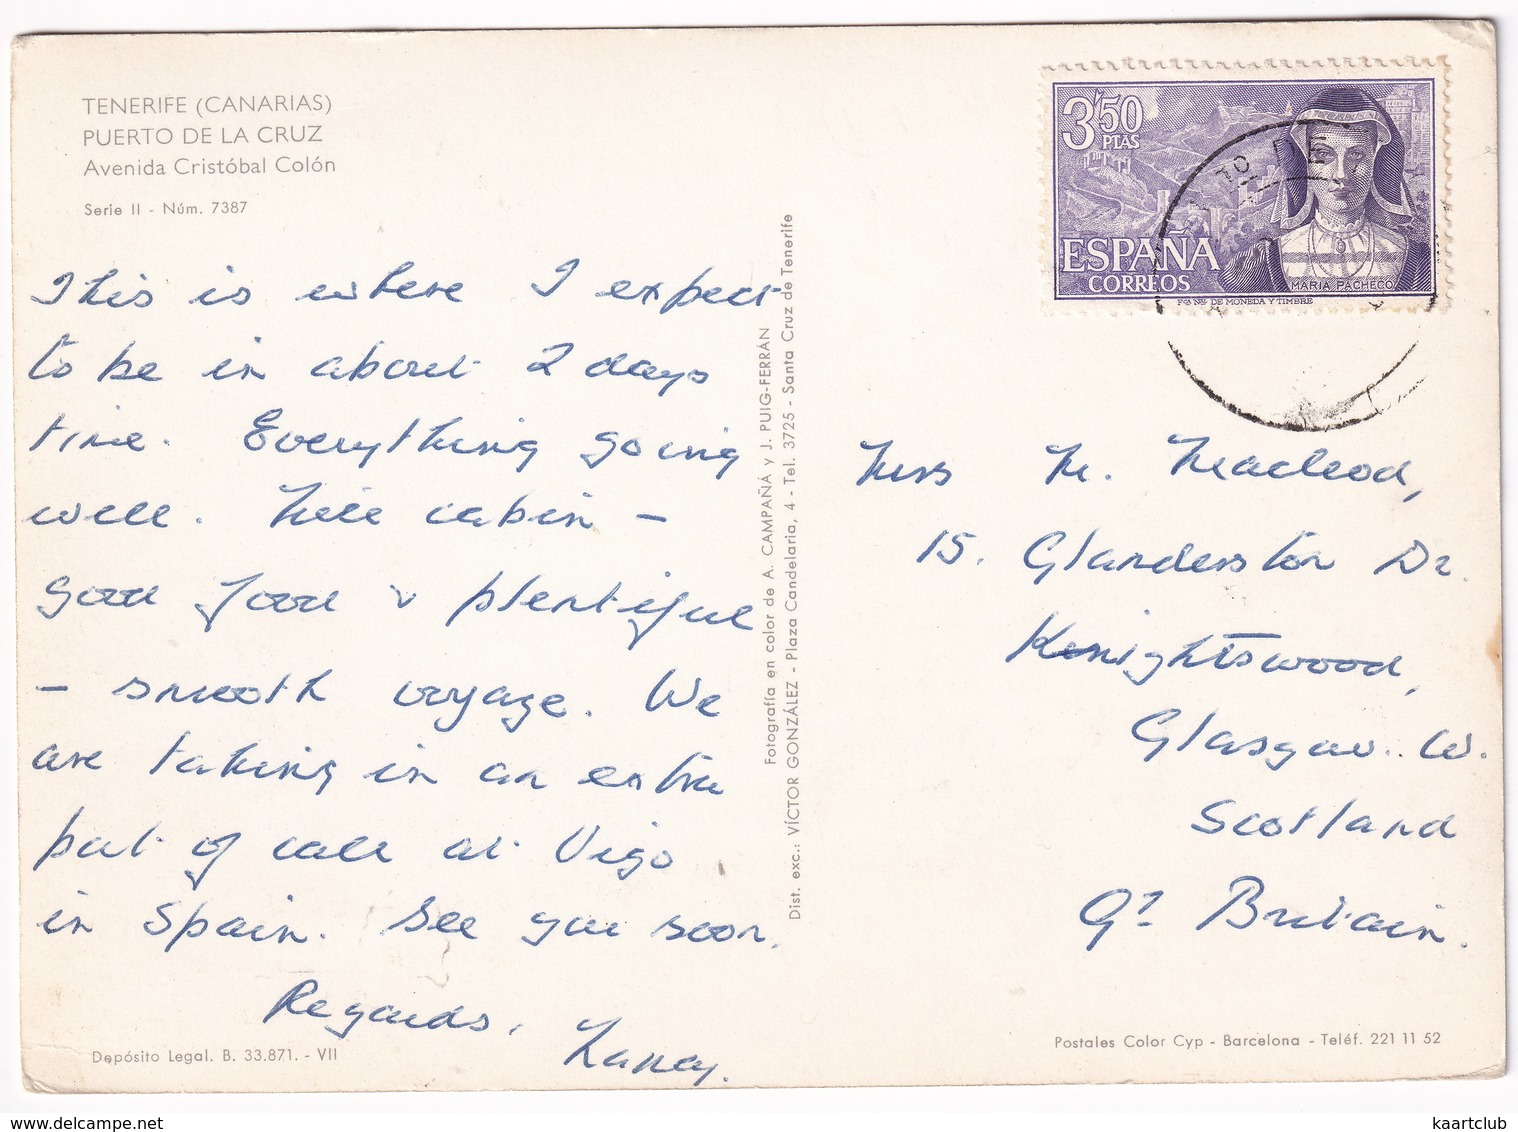 TENERIFE (CANARIAS)
PUERTO DE LA CRUZ
Avenida Cristóbal Colón
Serie II - Núm. 7387
This is where I expect
to be in about 2 days
time. Everything going
well. Nice cabin -
good food & plentiful
- smooth voyage. We
are taking in an extra
port of call at Vigo
in Spain. See you soon.
Regards,
Nancy.
Depósito Legal. B. 33.871. - VII
Fotografía en color de A. CAMPAÑÁ y J. PUIG-FERRÁN
Dist. exc.: VÍCTOR GONZÁLEZ - Plaza Candelaria, 4 - Tel. 3725 - Santa Cruz de Tenerife
3'50
PTAS
ESPAÑA
CORREOS
MARIA PACHECO
F.N.M. DE MONEDA Y TIMBRE
TO DE
Mrs M. Macleod,
15. Glanderston Dr.
Knightswood,
Glasgow. W.
Scotland
Gt Britain.
Postales Color Cyp - Barcelona - Teléf. 221 11 52
kaartclub